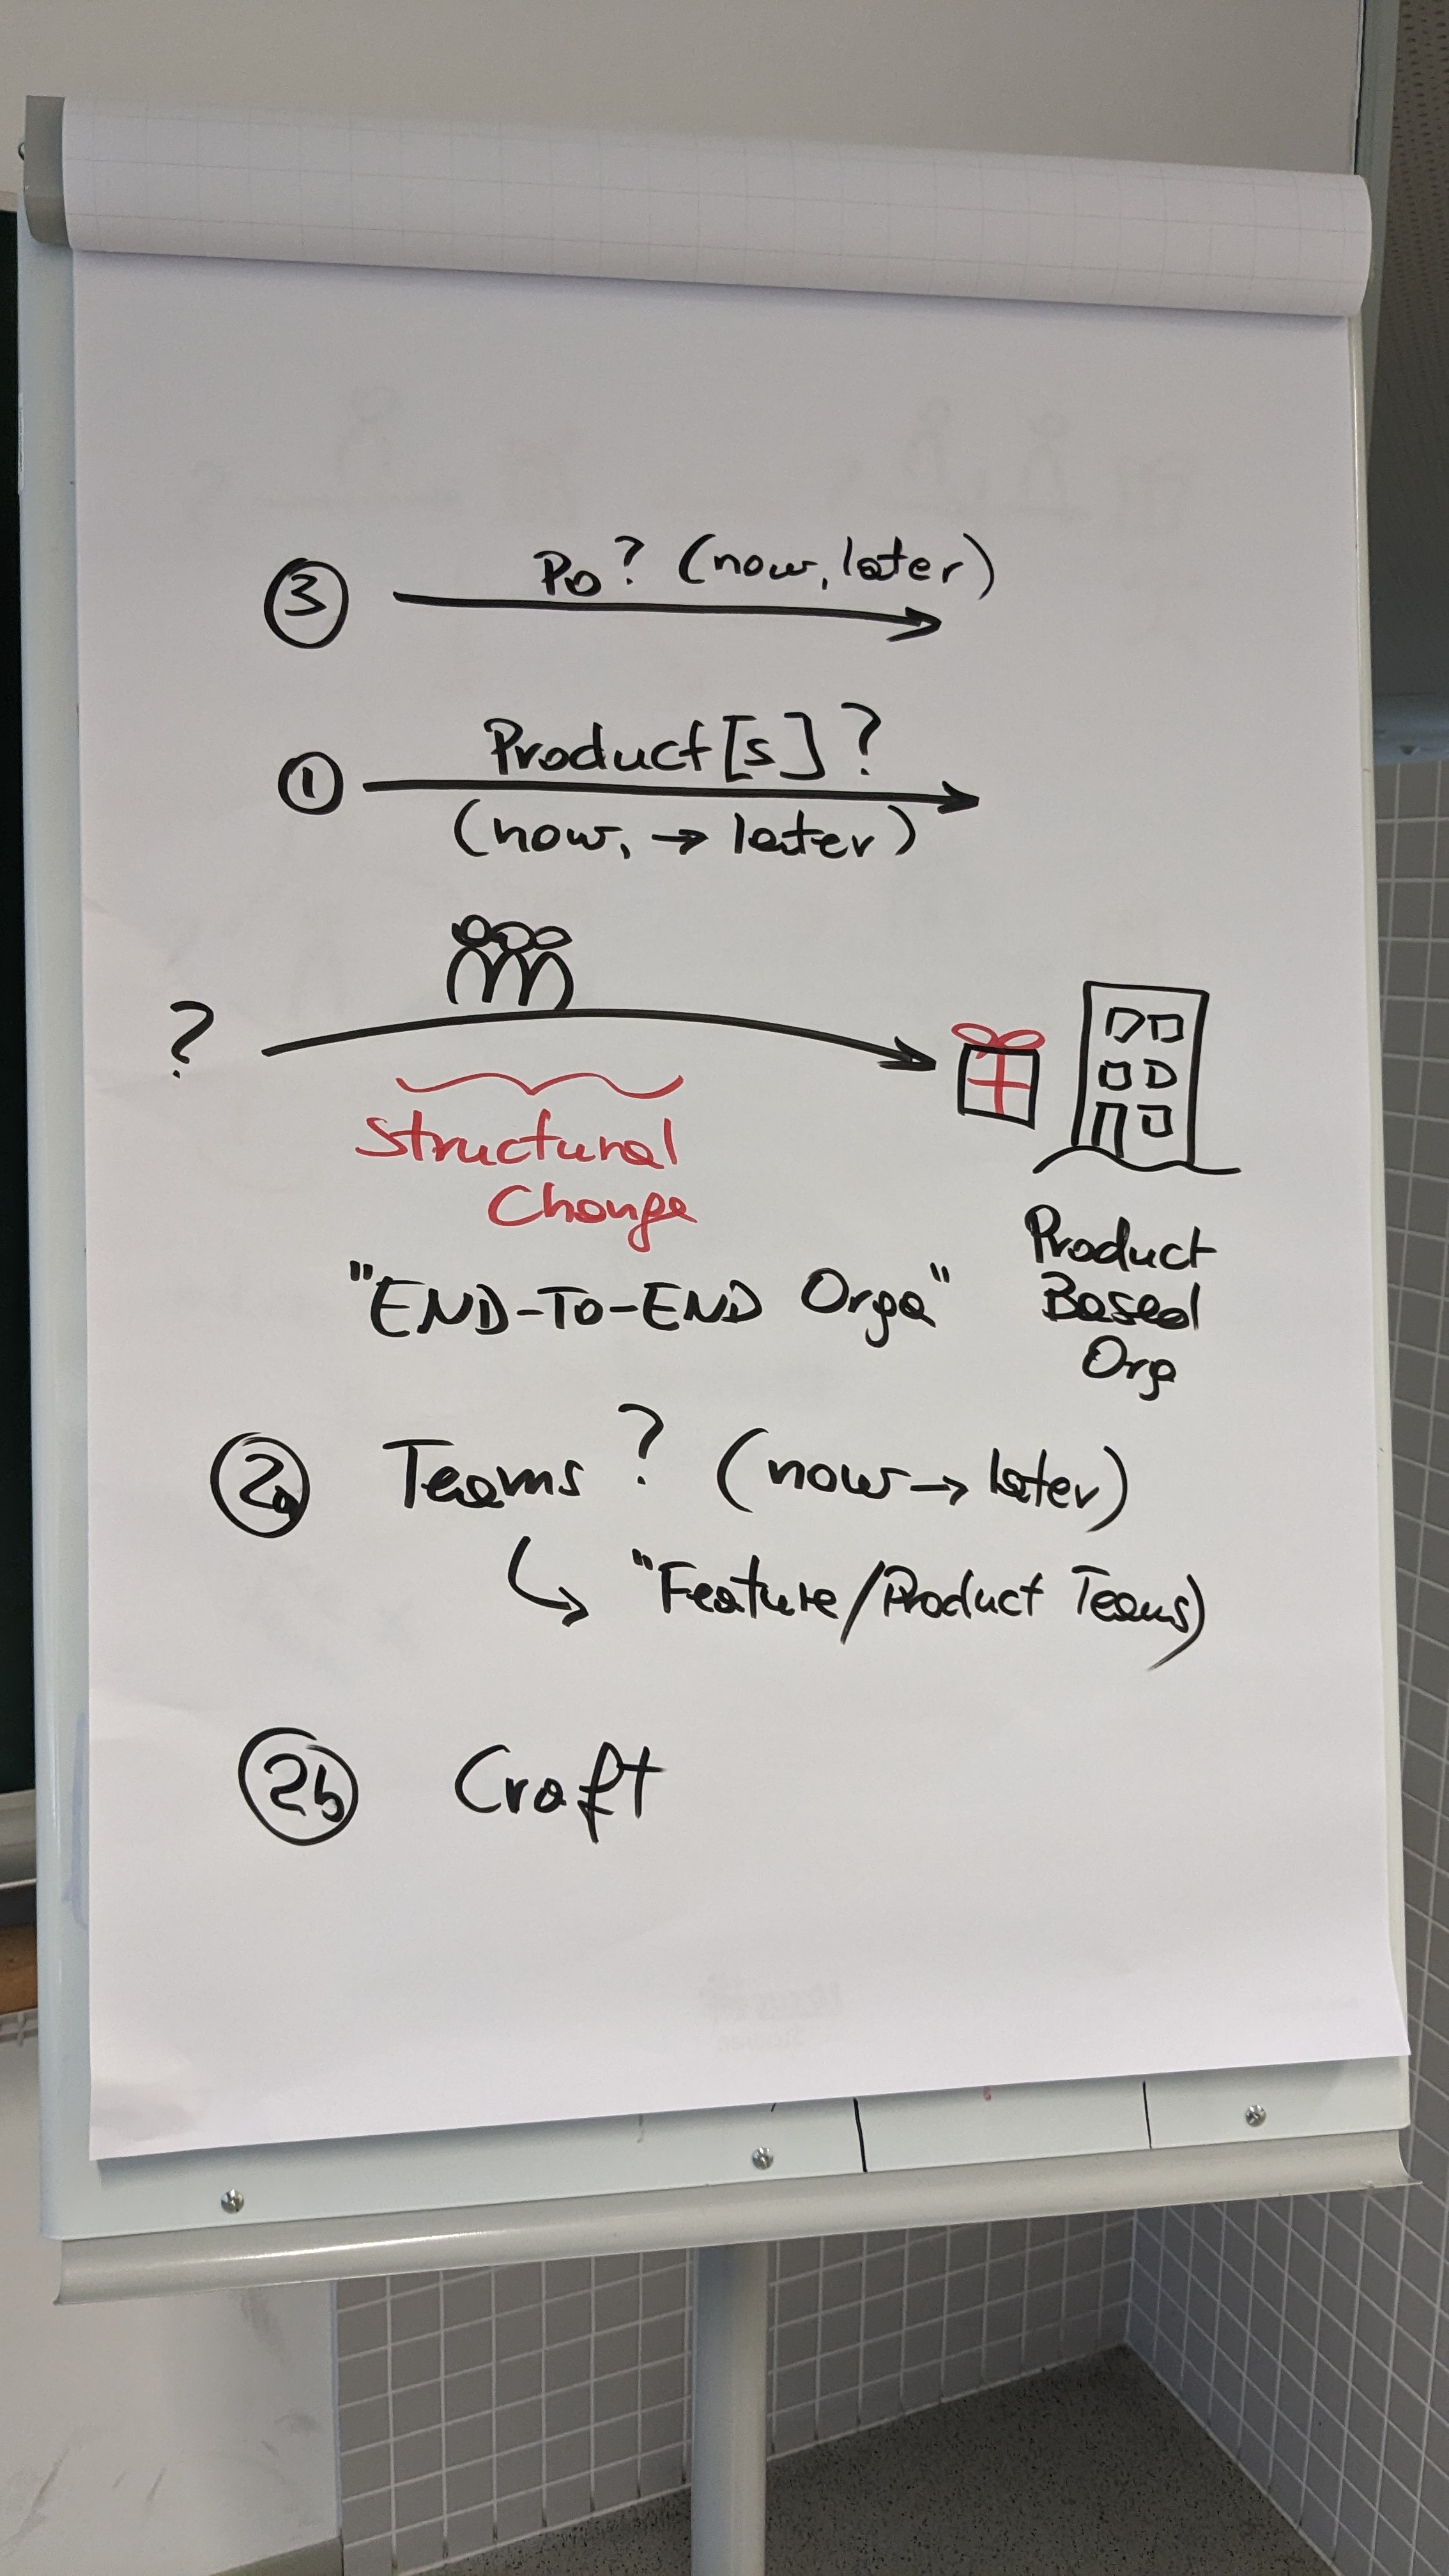 ③ Po? (now, later)
① Product[s]?
(now, → later)
?
Structural
Change
"END-TO-END Orga"
Product
Based
Org
2a Teams? (now → later)
"Feature/Product Teams)
2b Craft